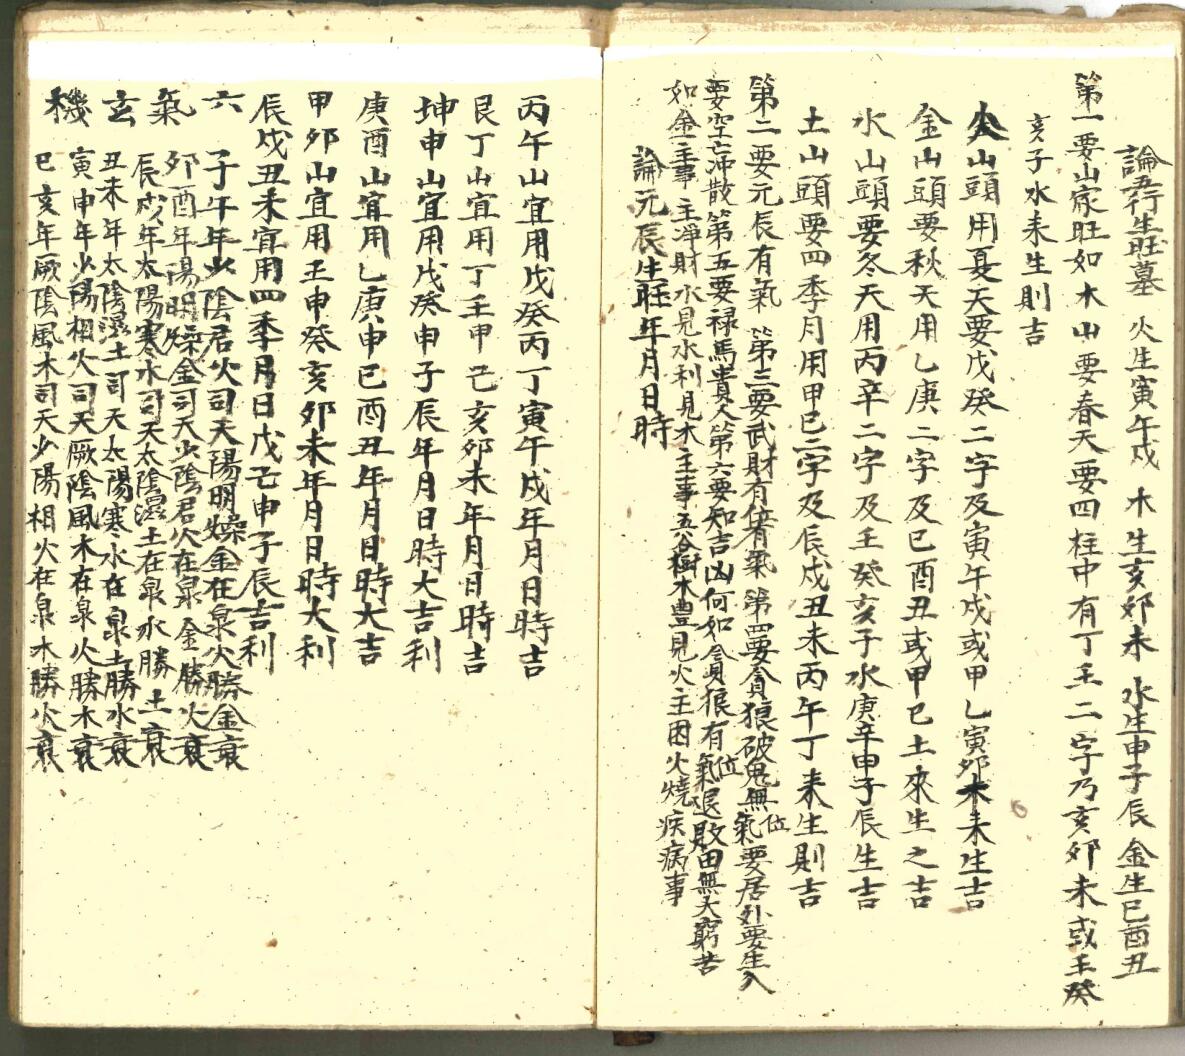 論五行生旺墓 火生寅午戌 木生亥卯未 水生申子辰 金生巳酉丑
第一要山家旺如木山要春天要四柱中有丁壬二字乃亥卯未或壬癸
亥子水來生則吉
火山頭用夏天要戊癸二字及寅午戌或甲乙寅卯木來生吉
金山頭要秋天用乙庚二字及巳酉丑或甲己土來生之吉
水山頭要冬天用丙辛二字及壬癸亥子水庚辛申子辰生吉
土山頭要四季月用甲己二字及辰戌丑未丙午丁來生則吉
第二要元辰有氣 第三要武財有氣 第四要貪狼破鬼無氣位要居外要生入
要空亡冲散第五要禄馬貴人第六要知吉凶何如貪狼有氣位退敗田無大窮苦
如金主事 主淨財水見水利見木主事五谷樹木豊見火主困火燒疾病事
論元辰生旺年月日時
丙午山宜用戊癸丙丁寅午戌年月日時吉
艮丁山宜用丁壬甲己亥卯未年月日時吉
坤申山宜用戊癸申子辰年月日時大吉利
庚酉山宜用乙庚申巳酉丑年月日時大吉
甲卯山宜用壬申癸亥卯未年月日時大利
辰戌丑未宜用四季月日戊己申子辰吉利
六 子午年少陰君火司天陽明燥金在泉火勝金衰
氣 卯酉年陽明燥金司天少陰君火在泉 金勝火衰
辰戌年太陽寒水司天太陰濕土在泉水勝土衰
玄 丑未年太陰濕土司天太陽寒水在泉土勝水衰
機 寅申年少陽相火司天厥陰風木在泉火勝木衰
巳亥年厥陰風木司天少陽相火在泉木勝火衰